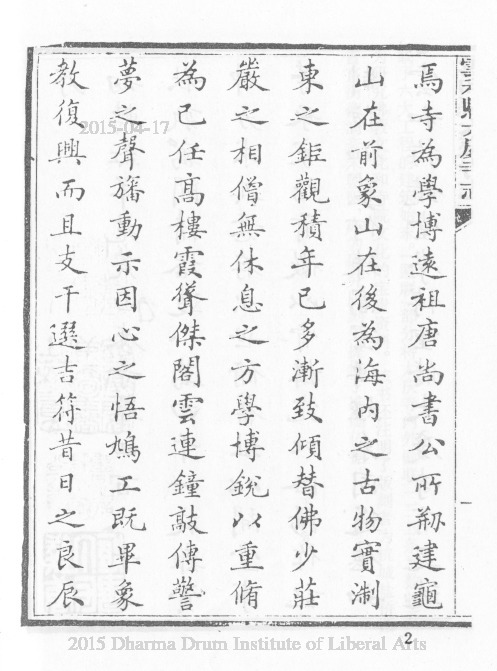 焉寺為學博遠祖唐尚書公所剙建龜
山在前象山在後為海內之古物實淛
東之鉅觀積年已多漸致傾替佛少莊
嚴之相僧無休息之方學博銳以重脩
為己任高樓霞聳傑閣雲連鐘敲傳警
夢之聲旛動示因心之悟鳩工既畢象
教復興而且支干選吉符昔日之良辰
2015-04-17
2
2015 Dharma Drum Institute of Liberal Arts